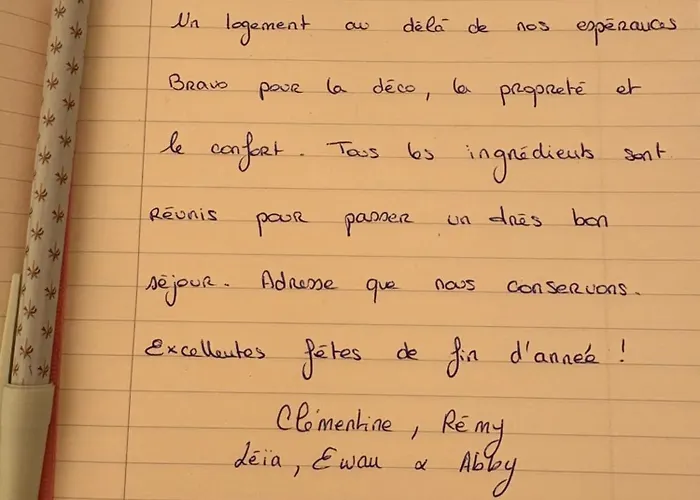 Un logement au délà de nos espérances
Bravo pour la déco, la propreté et
le confort. Tous les ingrédients sont
Réunis pour passer un très bon
séjour. Adresse que nous conservons.
Excellentes fêtes de fin d'année !
Clémentine, Rémy
Léïa, Ewan & Abby